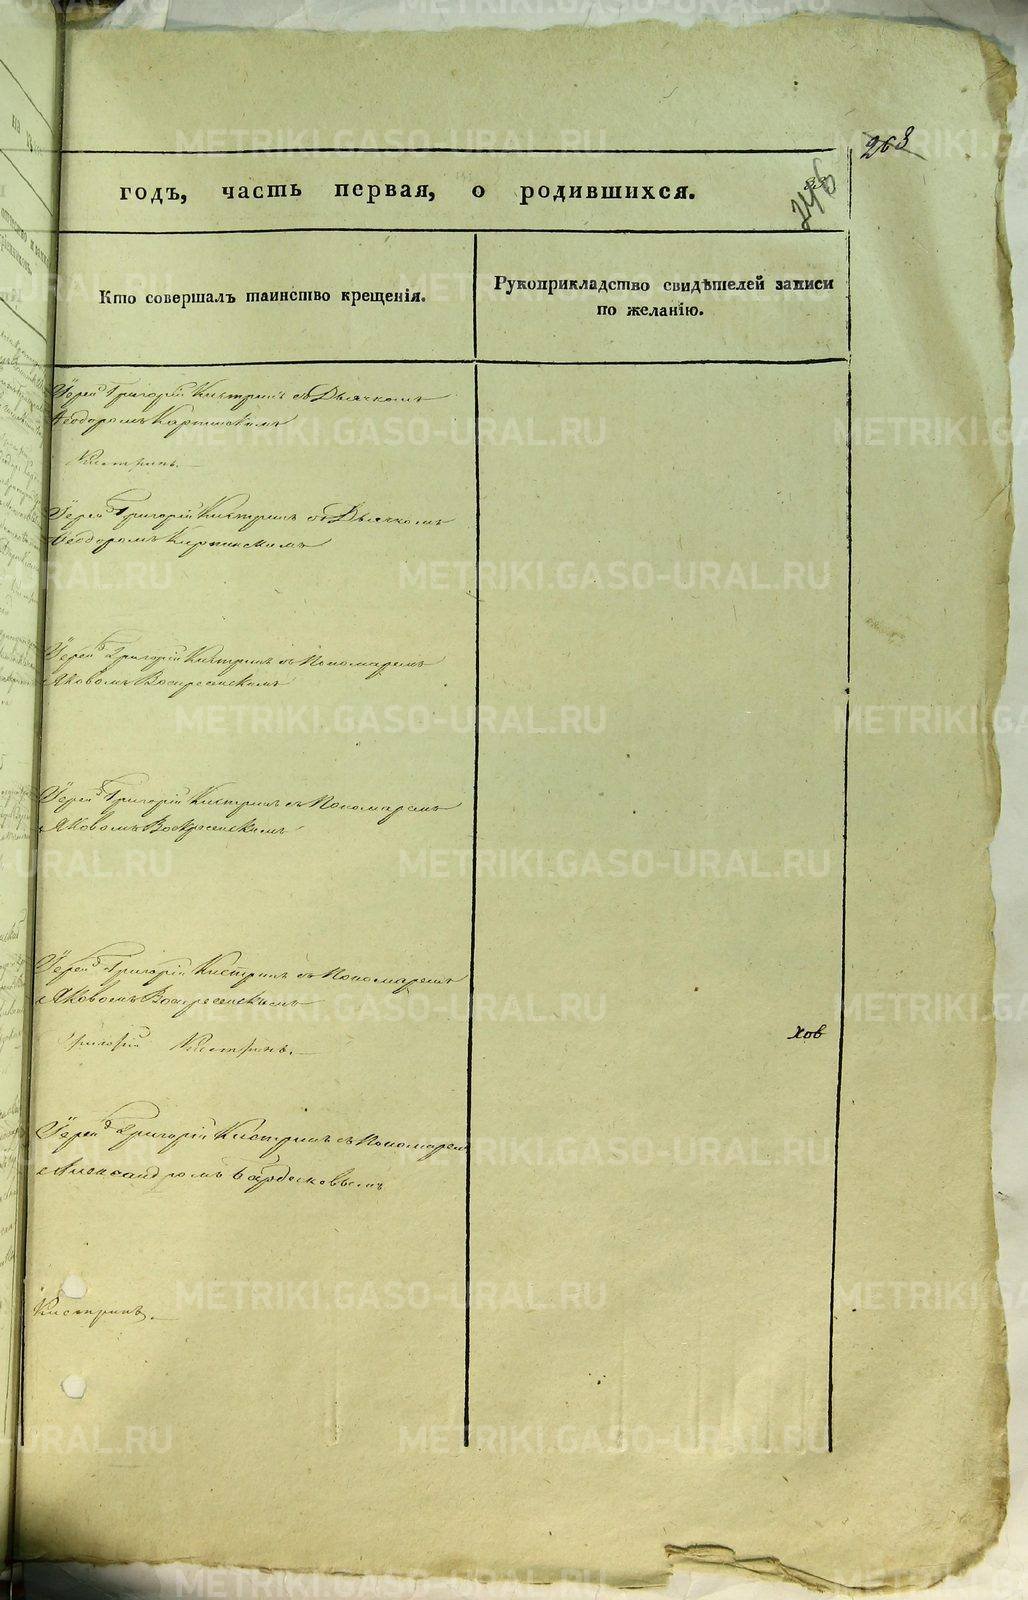 268
246
годъ, часть первая, о родившихся.
Кто совершалъ таинство крещенія.
Рукоприкладство свидѣтелей записи
по желанію.
Іерей Григорій Кистринъ съ Дьячкомъ
Ѳеодоромъ Карпинскимъ
Кистринъ.
Іерей Григорій Кистринъ съ Дьячкомъ
Ѳеодоромъ Карпинскимъ
Іерей Григорій Кистринъ съ Пономаремъ
Яковомъ Воскресенскимъ
Іерей Григорій Кистринъ съ Пономаремъ
Яковомъ Воскресенскимъ
Іерей Григорій Кистринъ съ Пономаремъ
Яковомъ Воскресенскимъ
Григорій Кистринъ.
хов
Іерей Григорій Кистринъ съ Пономаремъ
Александромъ
Кистринъ.
METRIKI.GASO-URAL.RU